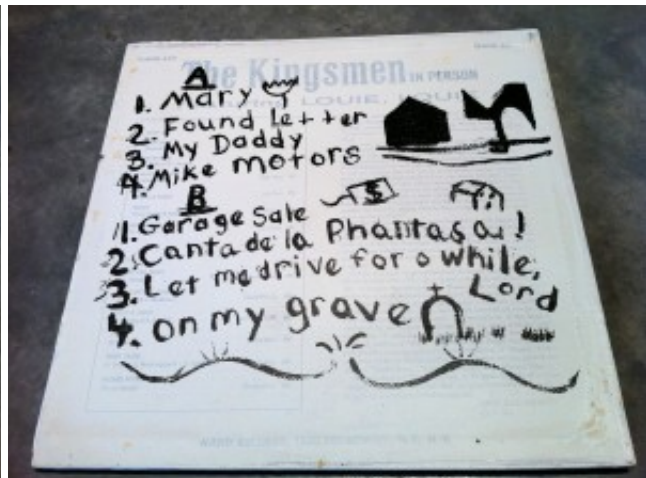 The Kingsmen IN PERSON
LOUIE, LOUIE
A
1. Mary
2. Found letter
3. My Daddy
4. Mike motors
B
1. Garage Sale $
2. Canta de la Phantasa!
3. Let me drive for a while,
Lord
4. on my grave